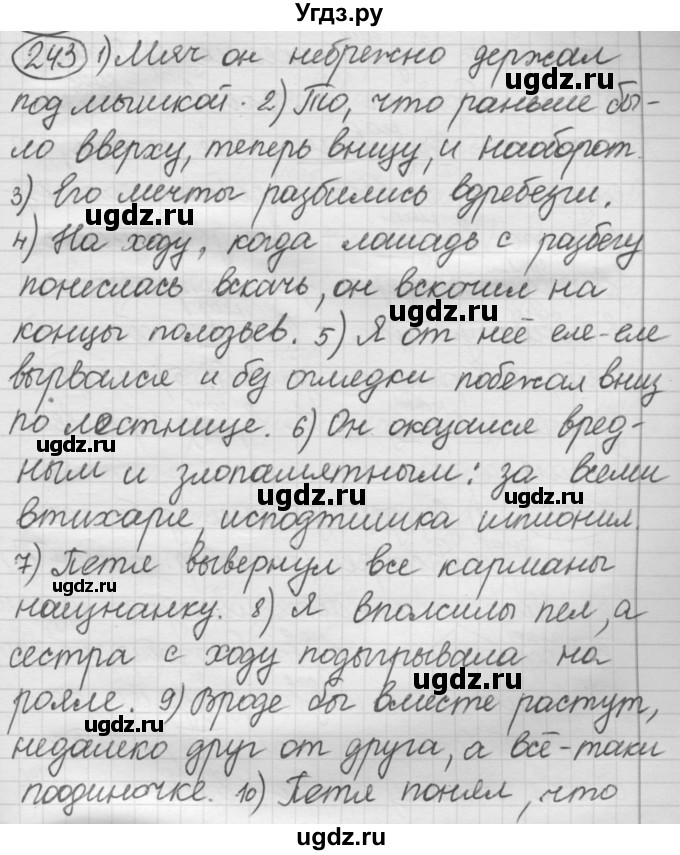 Угдз.ру
243 1) Мяч он небрежно держал
под мышкой. 2) То, что раньше бы-
ло вверху, теперь внизу, и наоборот.
3) Его мечты разбились вдребезги.
4) На ходу, когда лошадь с разбегу
понеслась вскачь, он вскочил на
концы полозьев. 5) Я от неё еле-еле
вырвался и без оглядки побежал вниз
по лестнице. 6) Он оказался вред-
ным и злопамятным: за всеми
втихаря, исподтишка шпионил.
7) Петя вывернул все карманы
наизнанку. 8) Я вполсилы пел, а
сестра с ходу подыгрывала на
рояле. 9) Вроде бы вместе растут,
недалеко друг от друга, а всё-таки
поодиночке. 10) Петя понял, что
ugdz.ru
ugdz.ru
ugdz.ru
ugdz.ru
ugdz.ru
ugdz.ru
ugdz.ru
ugdz.ru
ugdz.ru
ugdz.ru
ugdz.ru